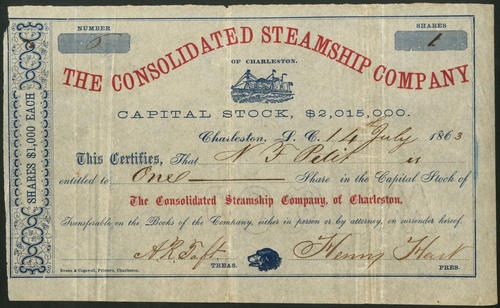 NUMBER
5
SHARES
1
THE CONSOLIDATED STEAMSHIP COMPANY
OF CHARLESTON.
CAPITAL STOCK, $2,015,000.
Charleston, S. C. 14 July 1863
This Certifies, That N F Petit is
entitled to One Share in the Capital Stock of
The Consolidated Steamship Company, of Charleston.
Transferable on the Books of the Company, either in person or by attorney, on surrender hereof.
A.R. Taft. TREAS.
Henry Hart PRES.
Evans & Cogswell, Printers, Charleston.
SHARES $1,000 EACH